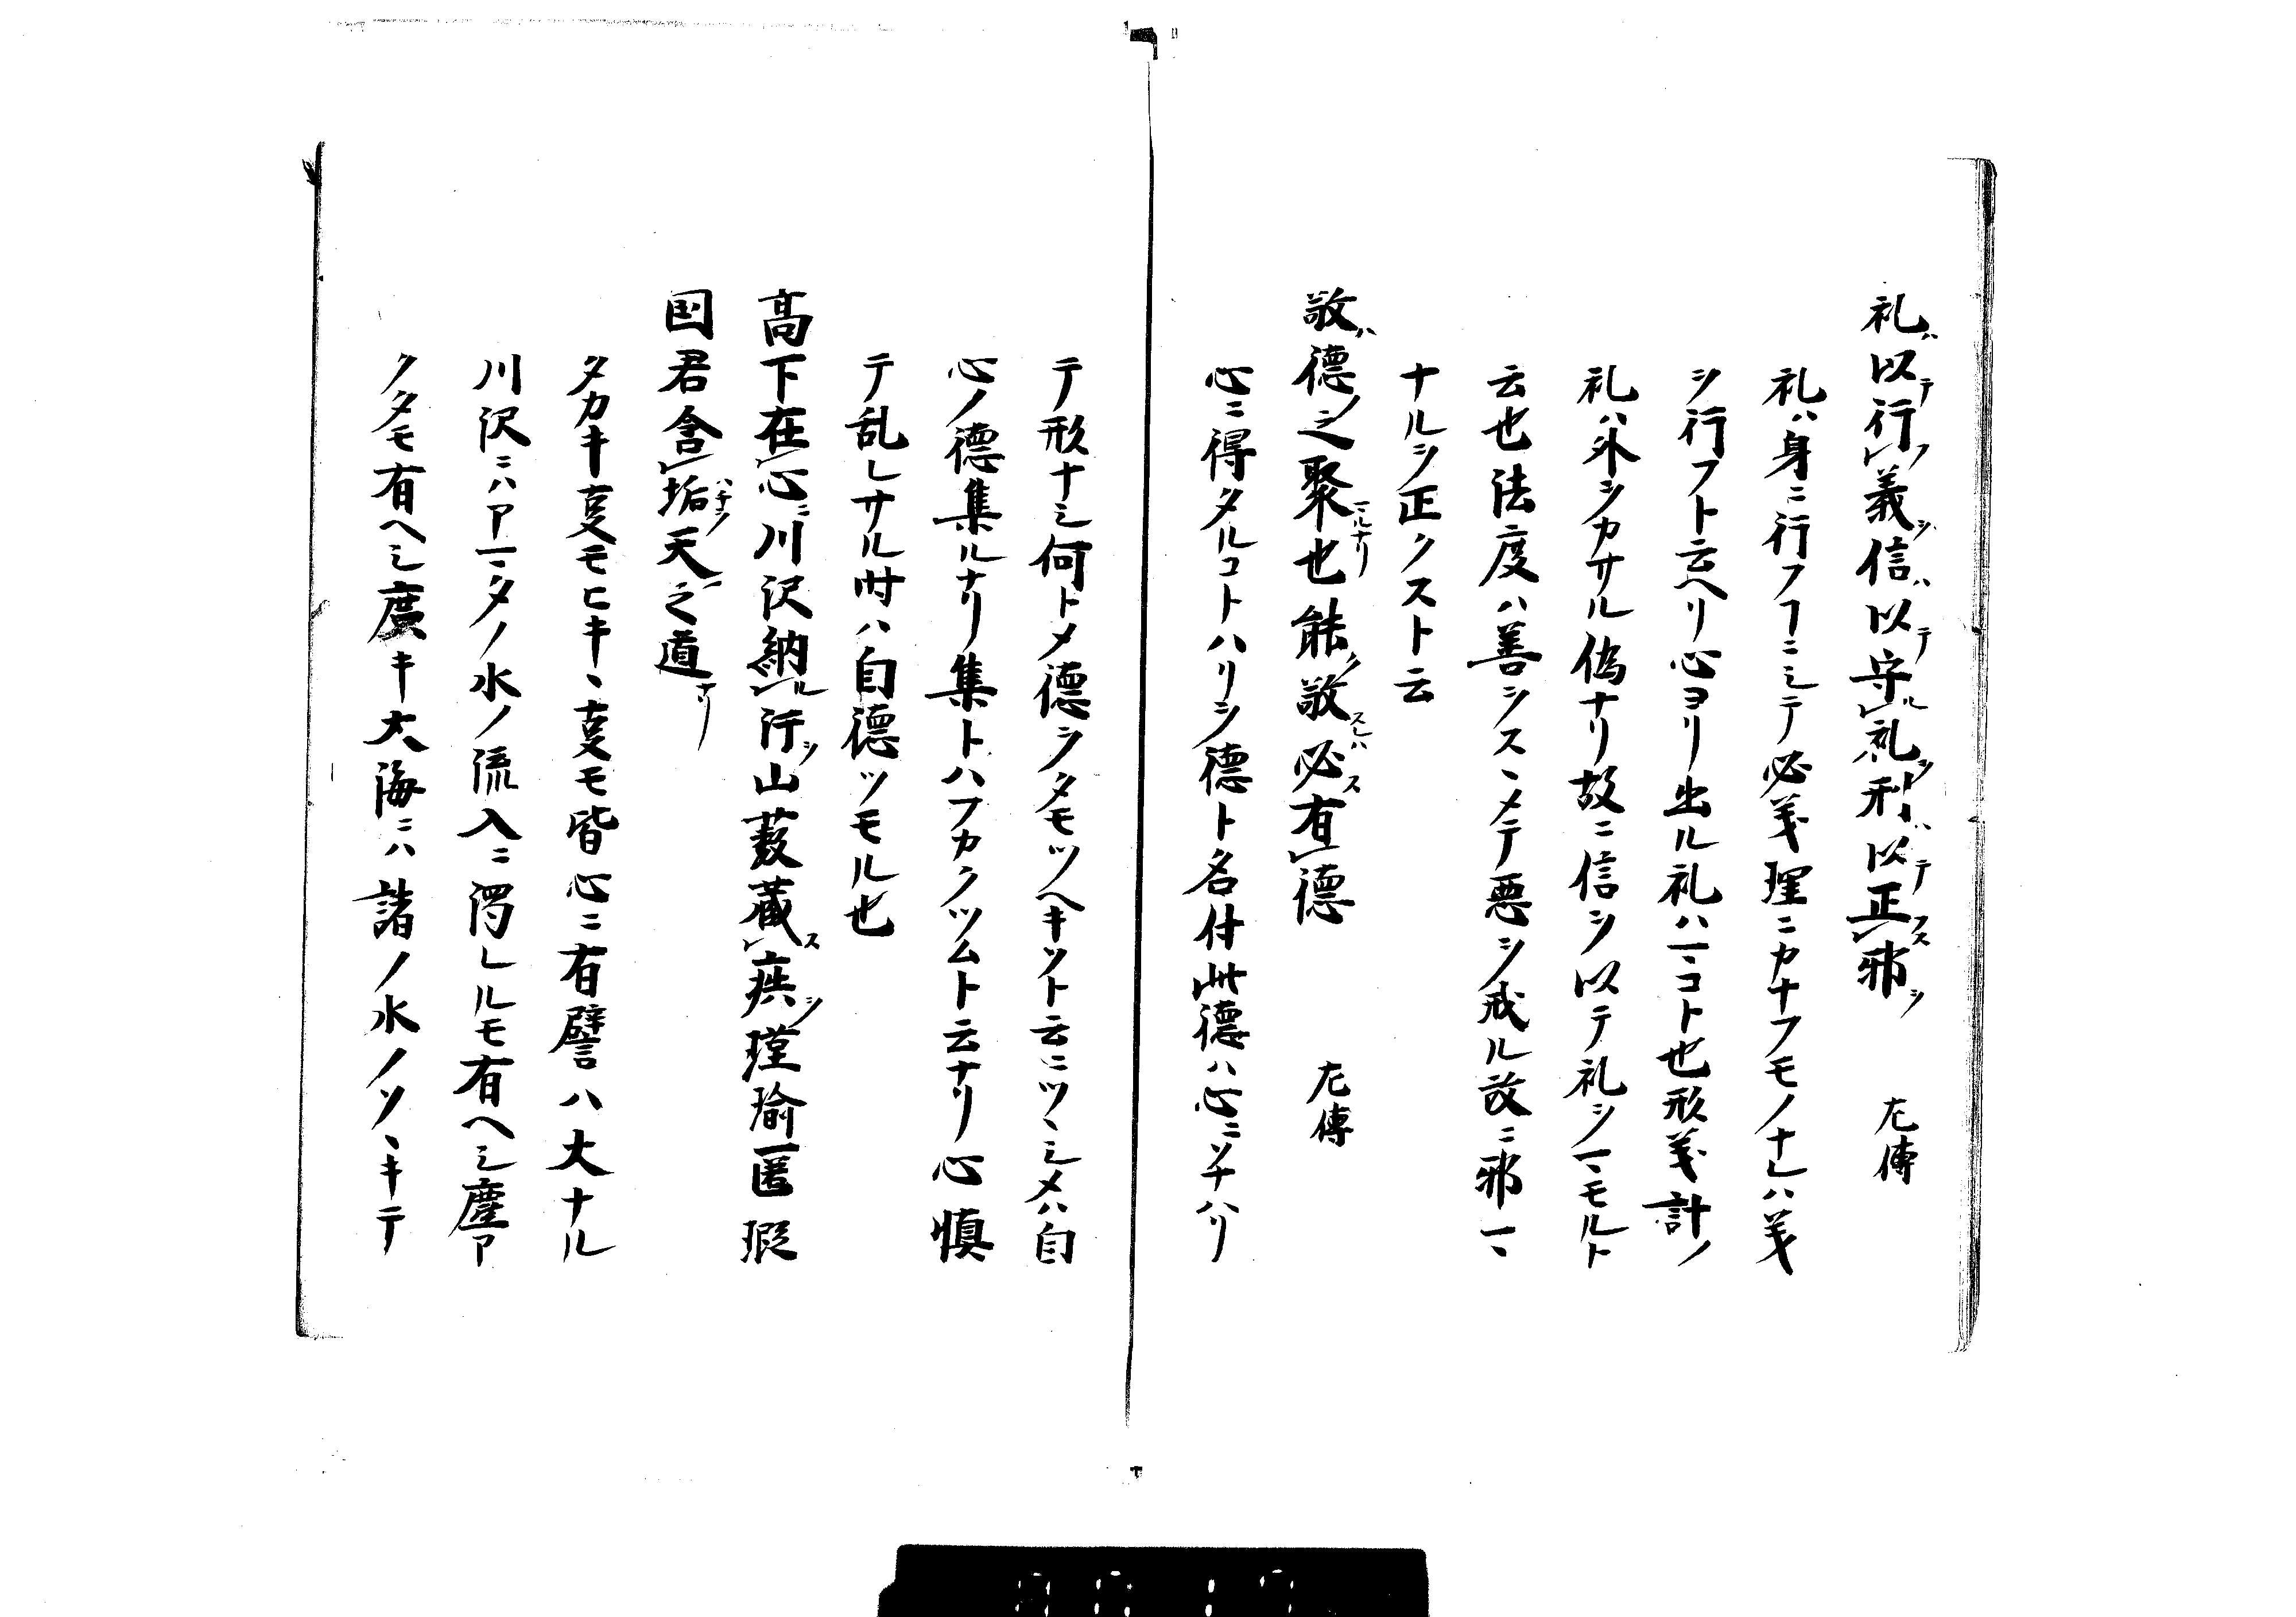 礼ハ以テ行フ義ヲ信ハ以テ守ル礼ヲ利ハ以テ正ス邪ヲ　左傳
礼ハ身ニ行フヿニシテ必義理ニカナフモノナレハ義
ヲ行フト云ヘリ心ヨリ出ル礼ハマコト也形義計ノ
礼ハ外ヲカサル偽ナリ故ニ信ヲ以テ礼ヲマモルト
云也法度ハ善ヲスヽメテ悪ヲ戒ル故ニ邪マ
ナルヲ正クスト云
敬ハ德ノ之聚也能ク敬スレハ必ス有德　左傳
心ニ得タルコトハリヲ德ト名付此德ハ心ニソナハリ
テ形ナシ何トメ德ヲタモツヘキソト云ニツヽシメハ自
心ノ德集ルナリ集トハフカクツムト云ナリ心慎
テ乱レサル时ハ自德ツモル也
高下在心ニ川沢納ル汙ヲ山薮藏ス疾ヲ瑾瑜匿瑕
国君含垢ハチヲ天之道ナリ
タカキ叓モヒキヽ叓モ皆心ニ有譬ハ大ナル
川沢ニハアマタノ水ノ流入ニ濁レルモ有ヘシ塵ア
クタモ有ヘシ廣キ大海ニハ諸ノ水ノソヽキテ